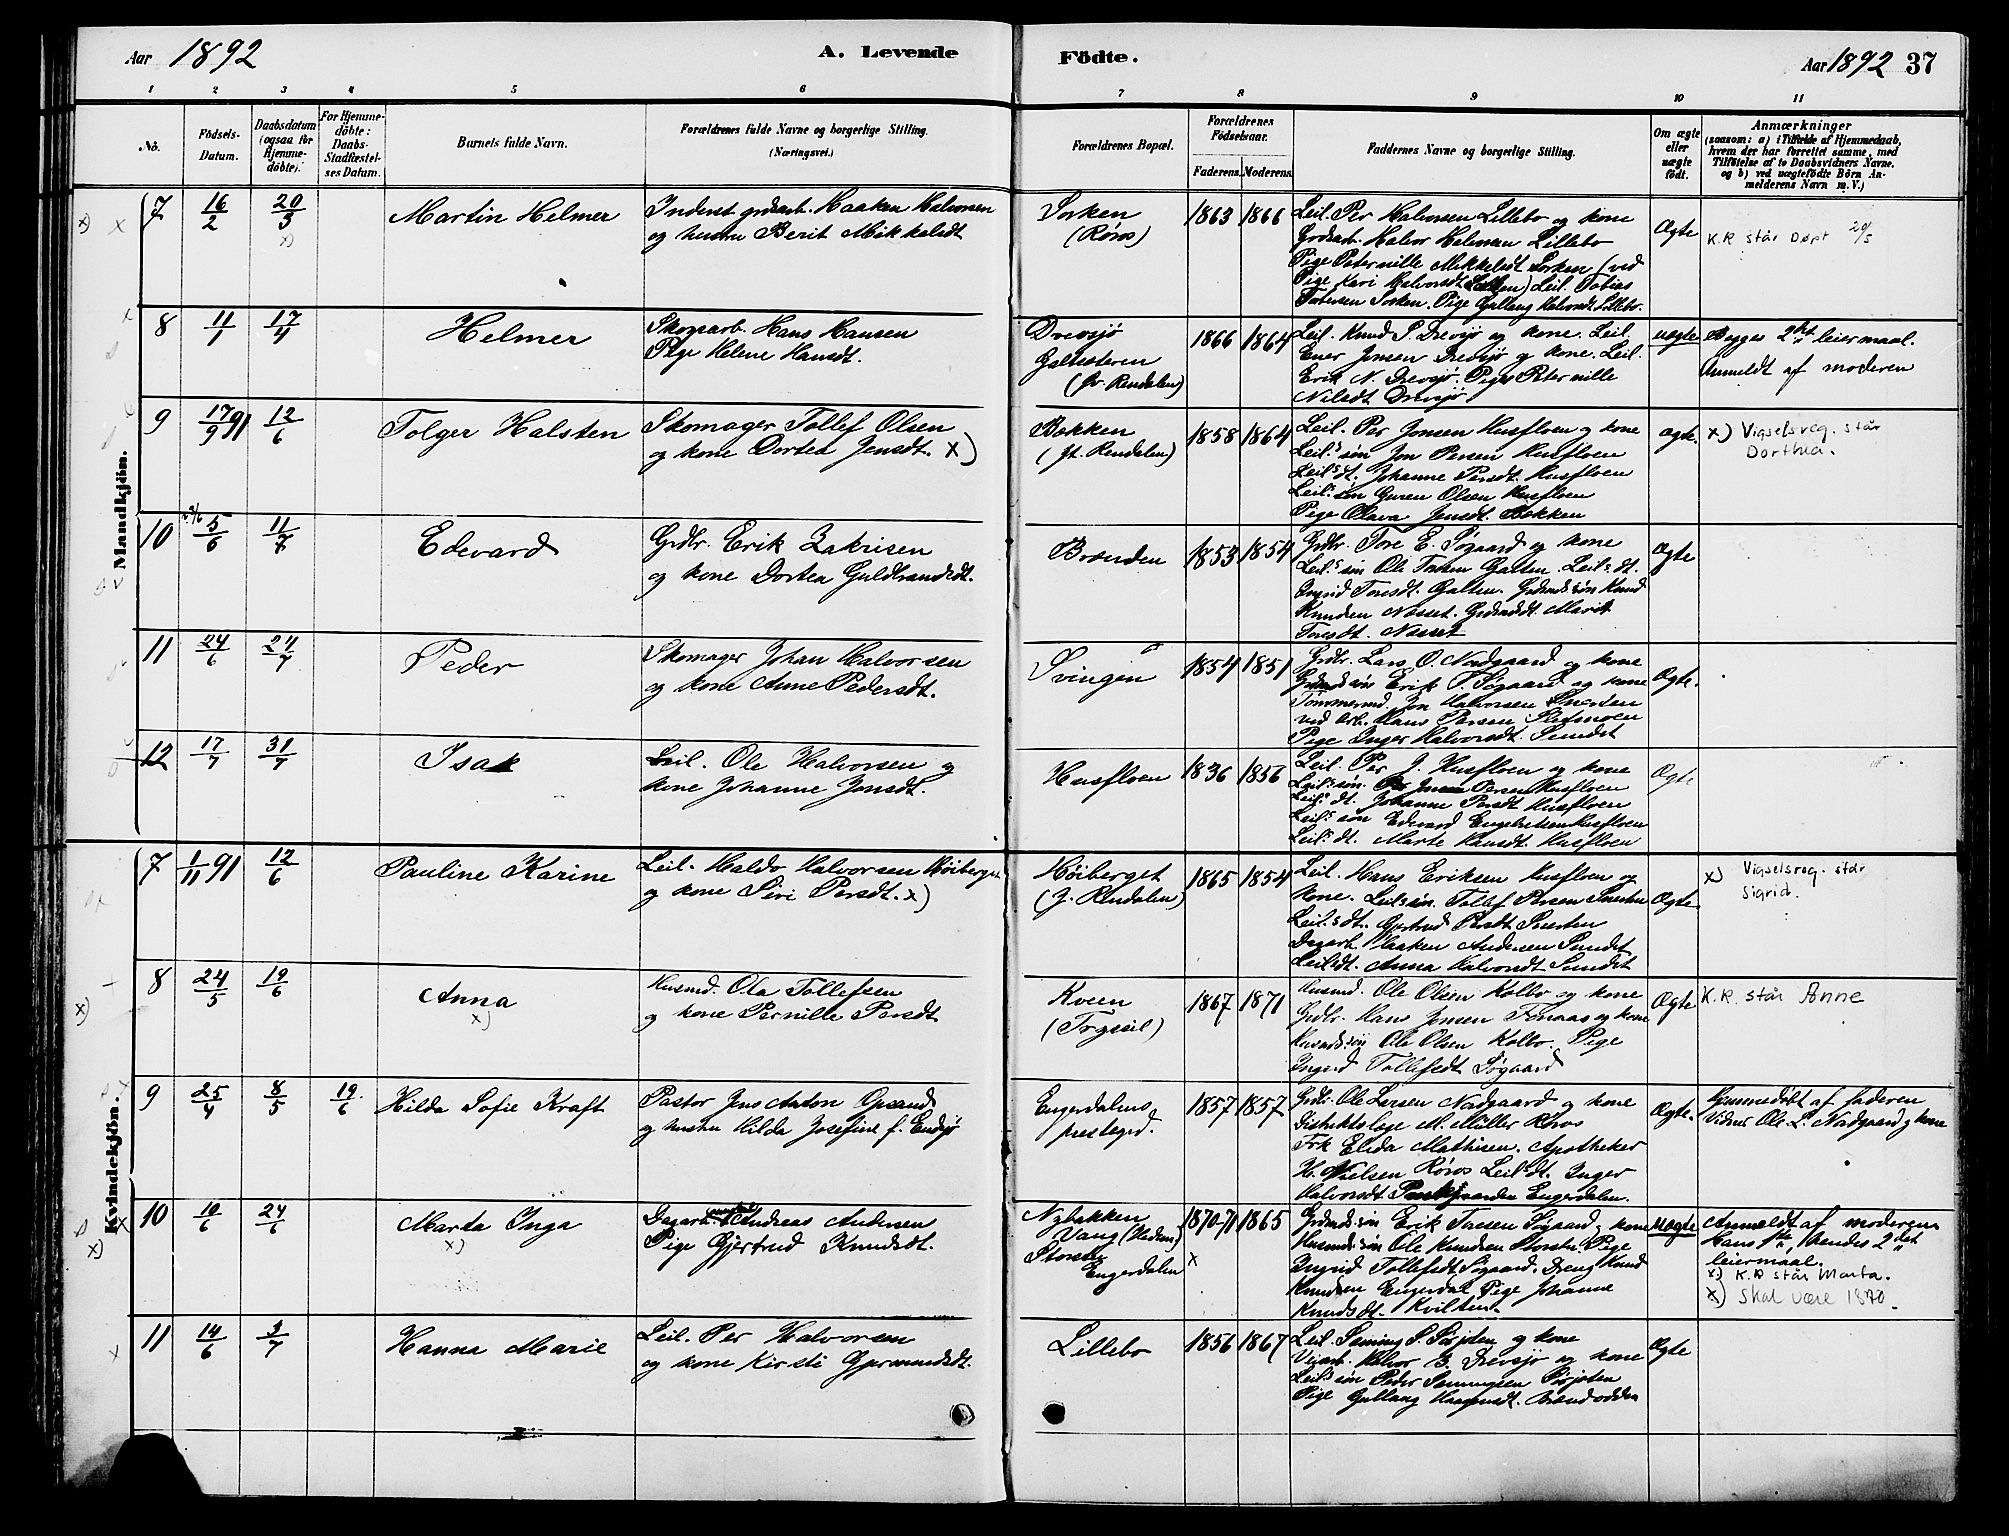 Aar 1892
A. Levende
Födte.
Aar 1892 37
1 2 3 4 5 6 7 8 9 10 11
No.
Födsels-Datum.
Daabsdatum (ogsaa for Hjemme-döbte).
For Hjemme-döbte: Daabs-Stadfæstel-ses Datum.
Barnets fulde Navn.
Forældrenes fulde Navne og borgerlige Stilling.
(Næringsvei.)
Forældrenes Bopæl.
Forældrenes Födselsaar.
Faderens. Moderens.
Faddernes Navne og borgerlige Stilling.
Om ægte eller uægte födt.
Anmærkninger
(saasom: a) i Tilfælde af Hjemmedaab,
hvem der har forrettet samme, med
Tilföielse af to Daabsvidners Navne,
og b) ved uægtefödte Börn An-
melderens Navn m. V.)
Mandkjön.
x) x 7 16/2 20/3 x) Martin Helmer
Inderst grdsarb. Haaken Halvorsen
og hustru Berit Mikkelsdt
Sorken
(Røros)
1863 1866
Leil. Per Halvorsen Lillebo og kone
Grdsarb. Halvor Halvorsen Lillebo
Pige Peternille Mikkelsdt Sorken (ved
Pige Kari Halvorsdt) Leil. Tobias
Sorken. Pige Gullaug Halvorsdt Lillebo.
Ægte
K.R står Døpt 20/5
8 11/1 17/4 Helmer
Skogsarb. Hans Hansen
Pige Helene Hansdt.
Drevsjø
(Øv. Rendalen)
1866 1864
Leil. Knud P. Drevsjø og kone. Leil.
Ener Jonsen Drevsjø og kone. Leil.
Erik N. Drevsjø. Pige Peternille
Nilsdt Drevsjø
uægte
Begges 2det leiermaal.
Anmeldt af moderen
9 17/9 91 12/6 Tolger Halsten
Skomager Tollef Olsen
og kone Dortea Jensdt. x)
Bækken
(Yt. Rendalen)
1858 1864
Leil. Per Jonsen Husfloen og kone
Leil.s søn Jon Persen Husfloen
Leil.s dt. Johanne Persdt. Husfloen
Leil.s søn Olsen Husfloen
Pige Olava Jensdt. Bækken
ægte.
x) Vigselsreg. står
Dorthea.
10 5/6 11/7 Edevard
Grdbr. Erik Zakrisen
og kone Dortea Guldbrandsdt.
Brænden
1853 1854
Grdbr. Tore E. Søgaard og kone
Leil.s søn Ole Galten. Leil.s dt.
Ingrid Toresdt. Galten. Grdmds søn Knud
Knudsen Næsset. Grdmds dt. Marit
Toresdt. Næsset
Ægte
11 24/6 24/7 Peder
Skomager Johan Halvorsen
og kone Anne Pedersdt.
Svingen
1854 1851
Grdbr. Lars O. Nadgaard og kone
Grdmds søn Erik T. Søgaard og kone
Tømmermd. Jon Halvorsen Snerten
ved arb. Hans Persen
Pige Inger Halvorsdt. Sundet
Ægte.
12 17/7 31/7 Isak
Leil. Ole Halvorsen og
kone Johanne Jonsdt.
Husfloen
1836 1856
Leil. Per J. Husfloen og kone
Leil.s søn Persen Husfloen
Leil.s dt. Johanne Persdt Husfloen
Leil.s søn Edevard Engebretsen Husfloen
Leil.s dt. Marte Hansdt. Husfloen
Ægte
Kvindekjön.
7 1/11 91 12/6 Pauline Karine
Leil. Haldo Halvorsen Høiberget
og kone Siri Persdt. x)
Høiberget
(Y. Rendalen)
1865 1854
Leil. Hans Eriksen Husfloen og
kone. Leil.s søn Tollef Persen Snerten
Leil.s dt. Gjertrud Persdt Snerten
Dagarb. Haaken Andersen Sundet
Leil.s dt. Anna Halvorsdt Sundet
Ægte.
x) Vigselsreg. står
Sigrid.
x) 8 24/5 19/6 Anna
x)
Husmd. Ola Tollefsen
og kone Pernille Persdt
Kveen
(Trysil)
1867 1871
Husmd. Ole Olsen Kolbo og kone
Grdbr. Hans Jonsen Femaas og kone
Husmds søn Ole Olsen Kolbo. Pige
Ingrid Tollefsdt Søgaard
Ægte
K.R. står Anne
9 25/4 8/5 19/6 Hilda Sofie Kraft
Pastor Jens Anton Opsand
og hustru Hilda Josefine f. Endsjø
Engerdalens
prestegrd.
1857 1857
Grdbr. Ole Larsen Nadgaard og kone
Distriktslæge M. Müller Røros
Frk Elida Mathisen. Apotheker
H. Nielsen Røros Leil.s dt. Inger
Halvorsdt Engerdalen.
Ægte.
Hjemmedøbt af faderen
Vidner Ole L. Nadgaard og kone
x) 10 10/6 24/6 Marta Inga
x)
Dagarb. Andreas Andersen
Pige Gjertrud Knudsdt.
Nybakken
Vang (Hedem.)
Engerdalen
1870-71 1865
x
Grdmds søn Erik Søgaard og kone
Husmds søn Ole Knudsen Pige
Ingrid Tollefsdt Søgaard. Dreng Knud
Knudsen Engerdal Pige Johanne
Knudsdt. Kvilten
uægte
Anmeldt af moderen
Hans 1ste, hendes 2det
leiermaal.
x) K.R står Marta.
x) Skal være 1870.
x 11 14/6 3/7 Hanna Marie
Leil. Per Halvorsen
og kone Kirsti Gjermundsdt.
Lillebo
1856 1867
Leil. Seming og kone
Halvor B. Drevsjø og kone
Leil.s søn Peder Semingsen
Pige Gullaug Brændodden
Ægte